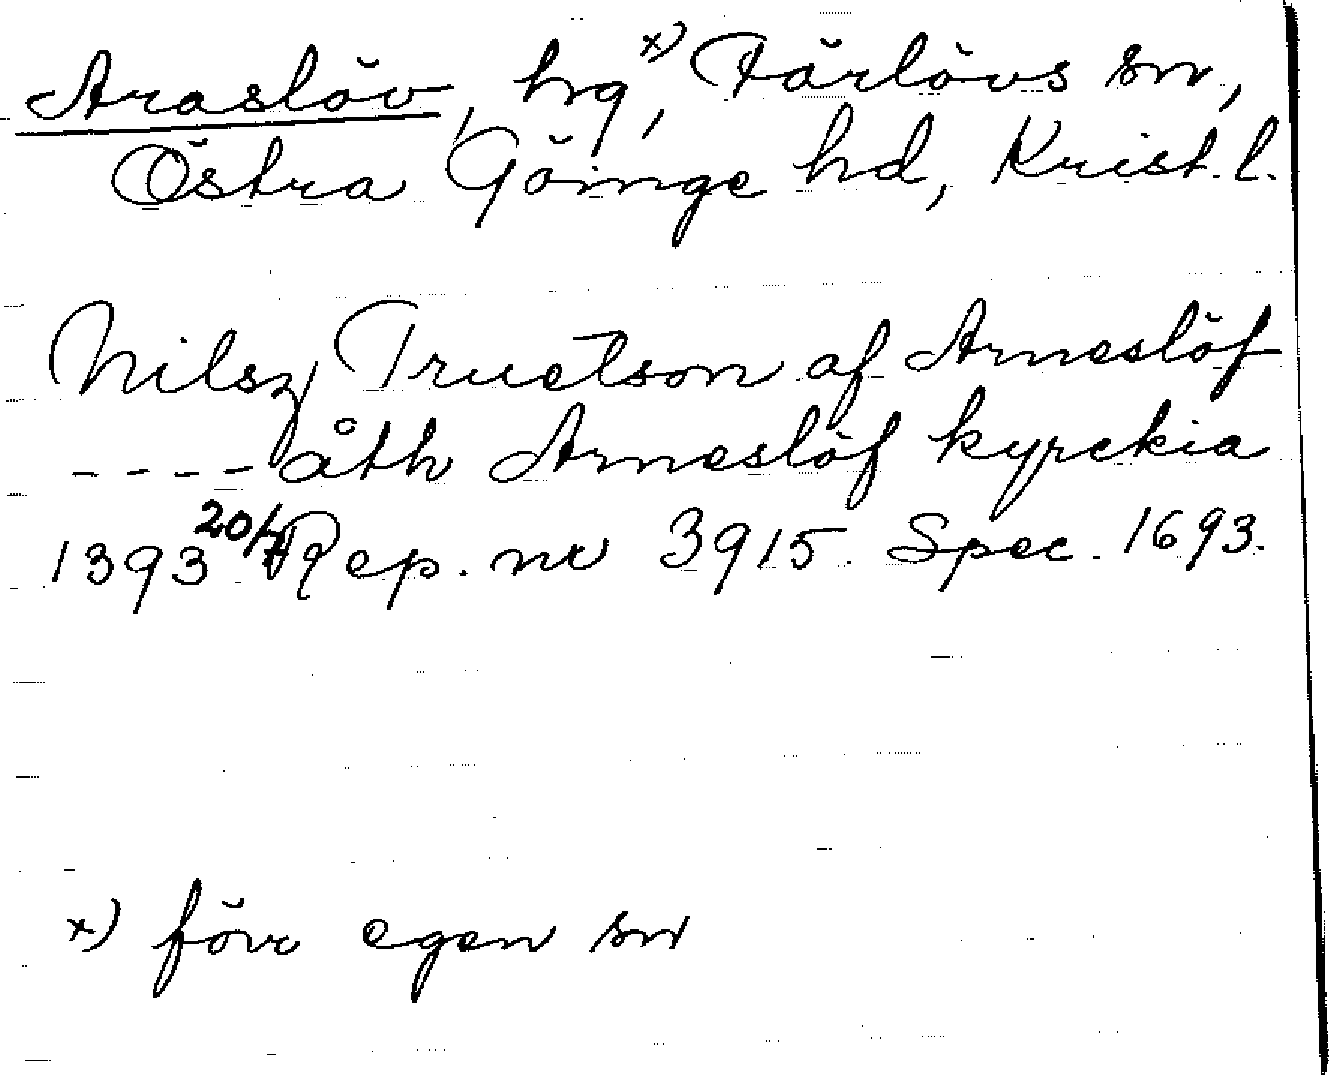 Araslöv, hg, x) Färlövs sn,
Östra Göinge hd, Krist. l.
Nilsz Truetson af Arneslöf
- - - - åth Arneslöf kyrckia
1393 20/7 Rep. nr 3915. Spec. 1693.
x) förr egen sn